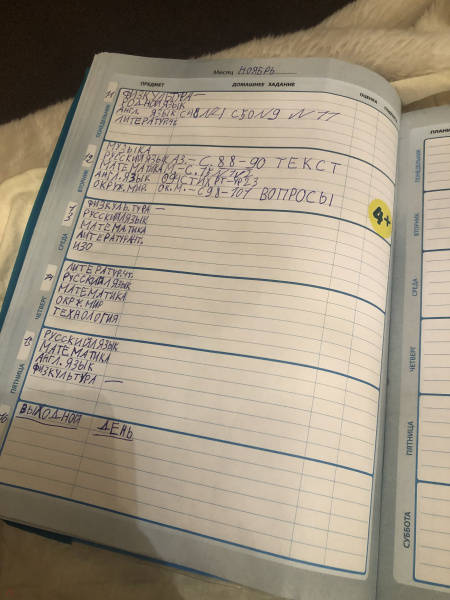 Месяц НОЯБРЬ
ПРЕДМЕТ ДОМАШНЕЕ ЗАДАНИЕ ОЦЕНКА
ПОНЕДЕЛЬНИК
ФИЗКУЛЬТУРА —
РОДНОЙ ЯЗЫК
АНГЛ. ЯЗЫК С48 №1 С50 №9 №11
ЛИТЕРАТУР.ЧТ.
ВТОРНИК
12
МУЗЫКА
РУССКИЙ ЯЗЫК АЗ.– С. 88-90 ТЕКСТ
МАТЕМАТИКА
АНГЛ. ЯЗЫК
ОКРУЖ. МИР ОК.М.– С98-101 ВОПРОСЫ
4+
СРЕДА
ФИЗКУЛЬТУРА —
РУССКИЙ ЯЗЫК
МАТЕМАТИКА
ЛИТЕРАТУР.ЧТ.
ИЗО
ЧЕТВЕРГ
ЛИТЕРАТУР.ЧТ.
РУССКИЙ ЯЗЫК
МАТЕМАТИКА
ОКРУЖ. МИР
ТЕХНОЛОГИЯ
ПЯТНИЦА
РУССКИЙ ЯЗЫК
МАТЕМАТИКА
АНГЛ. ЯЗЫК
ФИЗКУЛЬТУРА —
ВЫХОДНОЙ ДЕНЬ
ПОНЕДЕЛЬНИК
ВТОРНИК
СРЕДА
ЧЕТВЕРГ
ПЯТНИЦА
СУББОТА